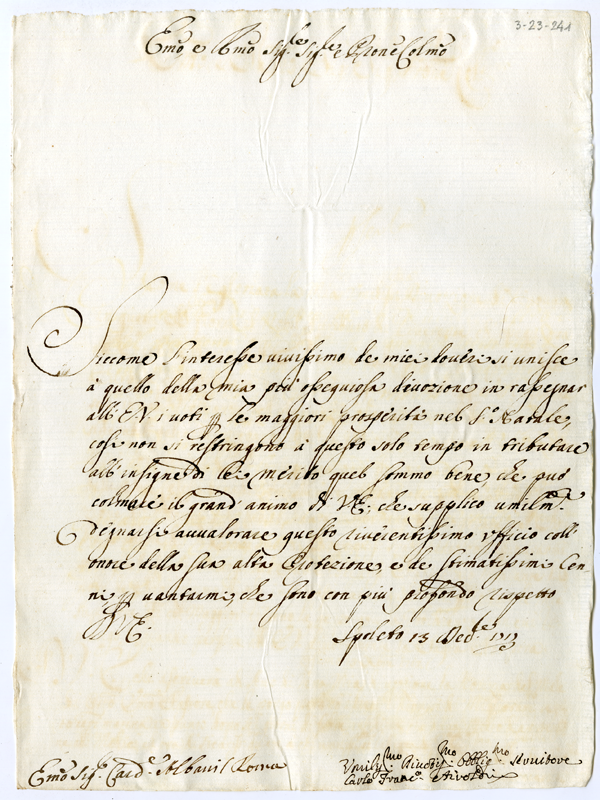 3-23-241
Emo, e Rmo Sig.re Sig.re e Prone Colmo
Siccome l'interesse vivissimo de miei doveri si unisce
à quello della mia più ossequiosa divozione in rassegnar
all'E.V. i voti p le maggiori prosperità nel S.o Natale,
così non si restringono à questo solo tempo in tributare
all'insigne di Lei merito quel sommo bene, che può
colmare il grand'animo di V.E., che supplico umilm.e
degnarsi avvalorare questo riverentissimo ufficio coll'
onore della sua alta Protezione, e de stimatissimi Cen
ni p vantarmi, che sono con più profondo rispetto
D V.E.
Spoleto 13 Dec.re 1713
Emo Sig.r Card.e Albani Roma
Umilis.mo Divotis.mo Obblig.mo Servitore
Carlo Franc.o